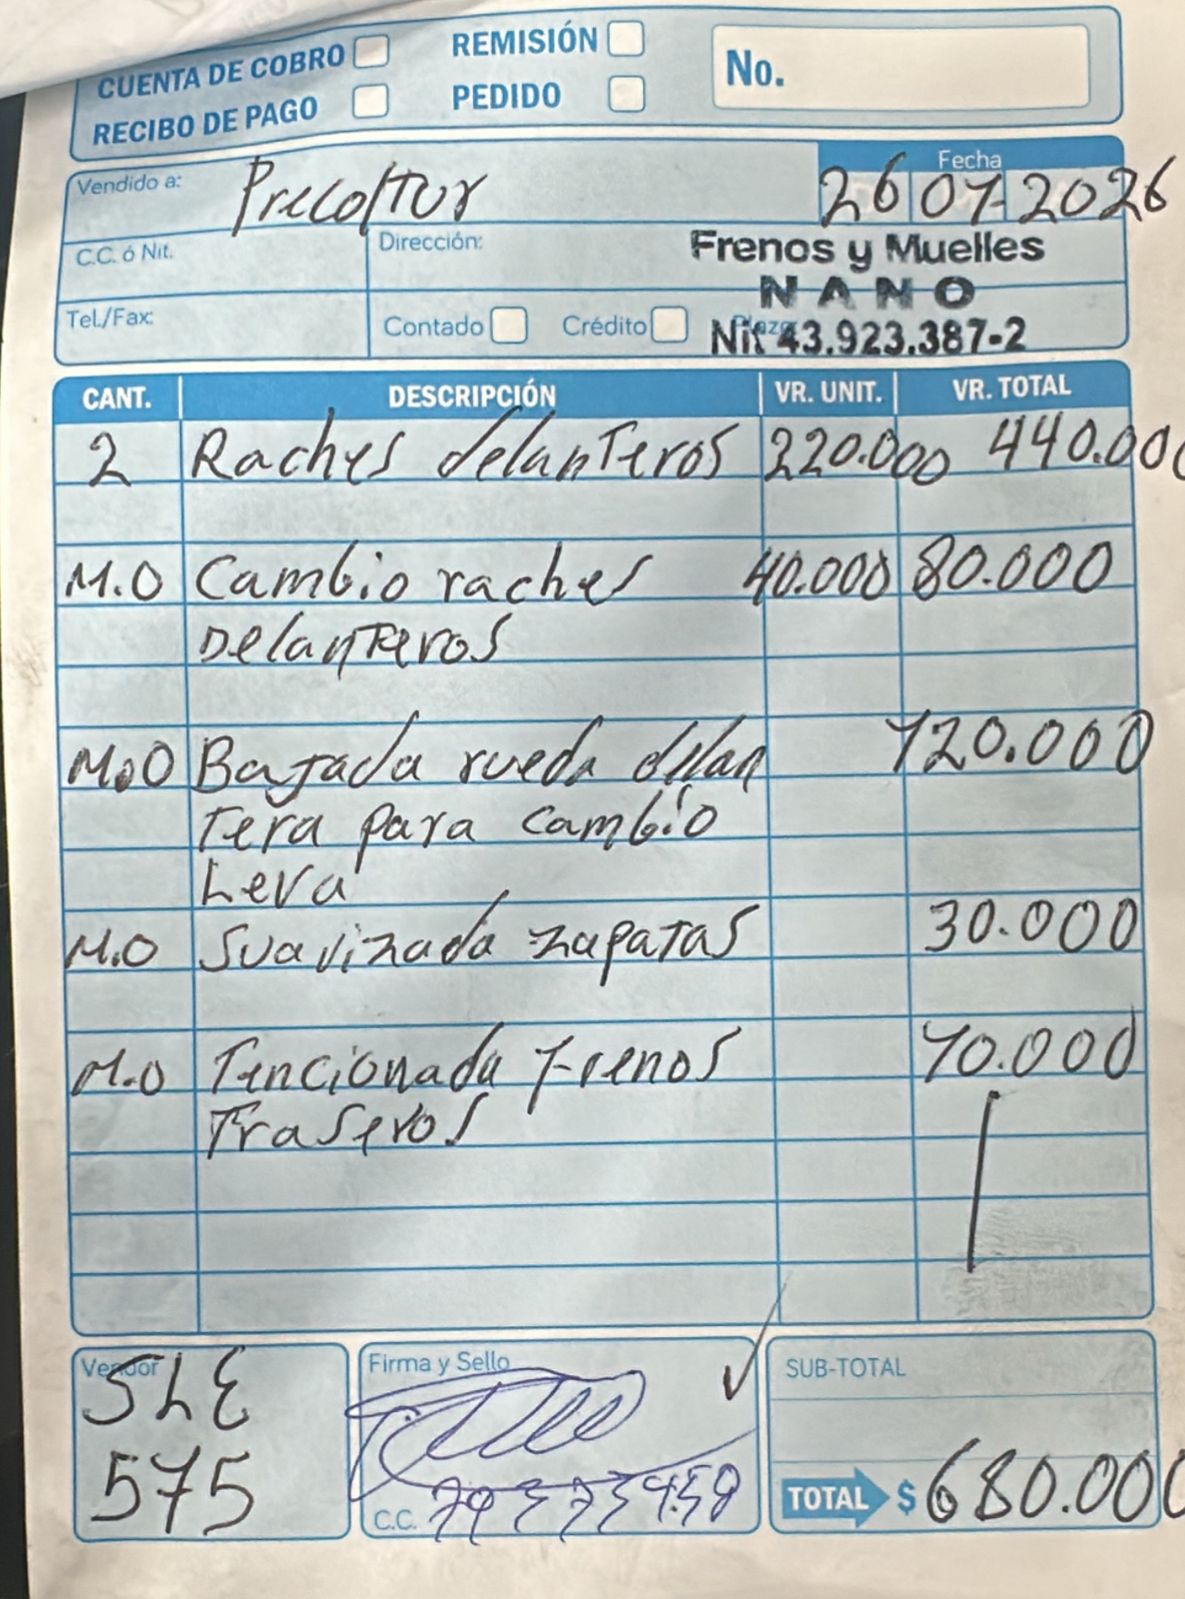 CUENTA DE COBRO
REMISIÓN
RECIBO DE PAGO
PEDIDO
No.
Vendido a: Precoltur
Fecha
26 01 2026
C.C. ó Nit.
Dirección:
Frenos y Muelles
NANO
Nit 43.923.387-2
Tel./Fax:
Contado
Crédito
CANT. DESCRIPCIÓN VR. UNIT. VR. TOTAL
2 Raches delanteros 220.000 440.000
M.O Cambio raches 40.000 80.000
Delanteros
M.O Bajada rueda delan 120.000
tera para cambio
Leva
M.O Suavizada zapatas 30.000
M.O Tencionada frenos 10.000
Traseros
Vendor
SLE
575
Firma y Sello
C.C.
SUB-TOTAL
TOTAL $ 680.000